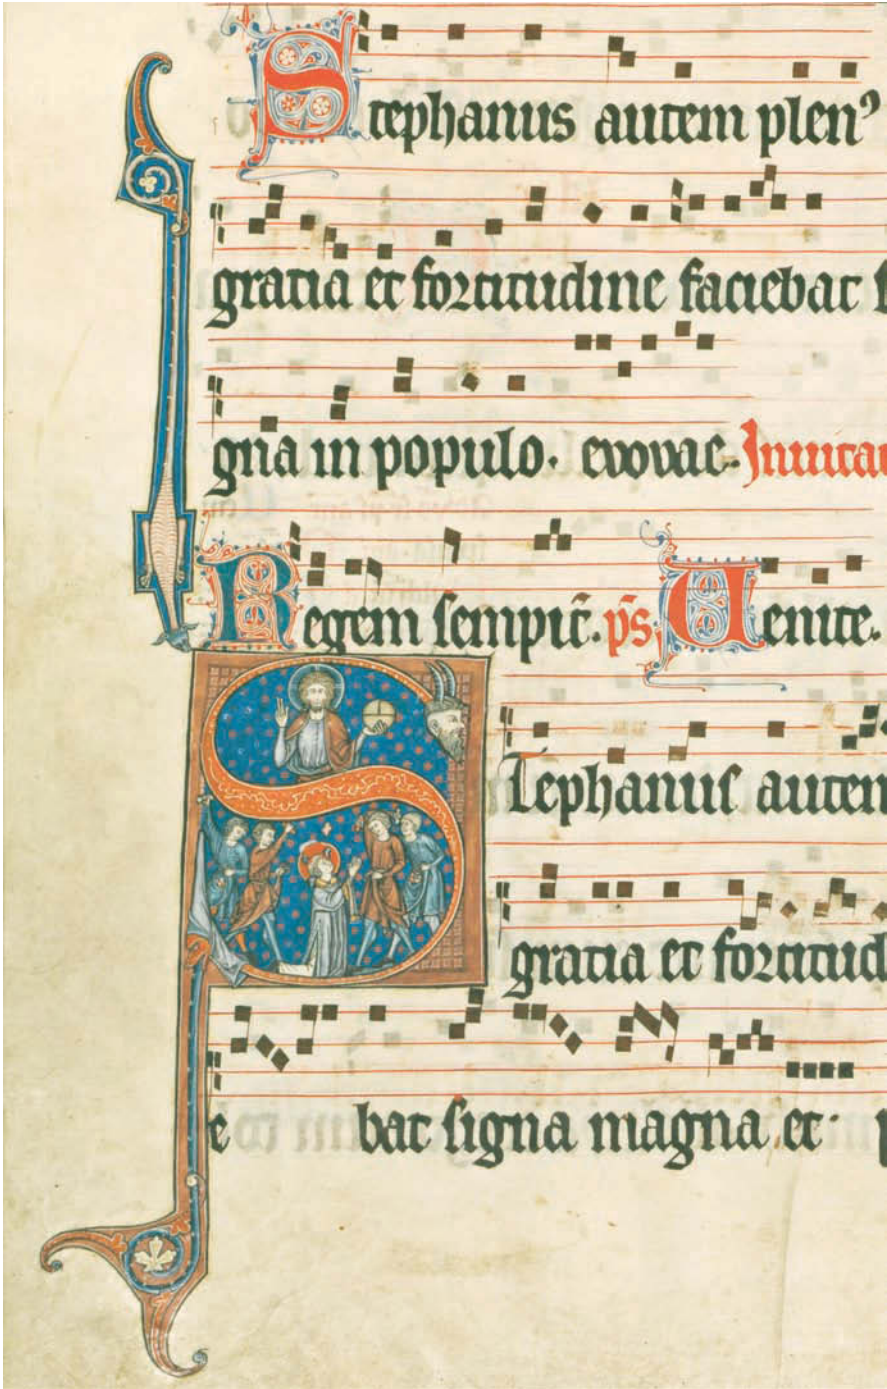 Stephanus autem plenꝰ
gratia et fortitudine faciebat
gna in populo. evovae. Inuita
Regem sempit̃. p̃s. Uenite.
Stephanus autem
gratia et fortitud
e bat signa magna et